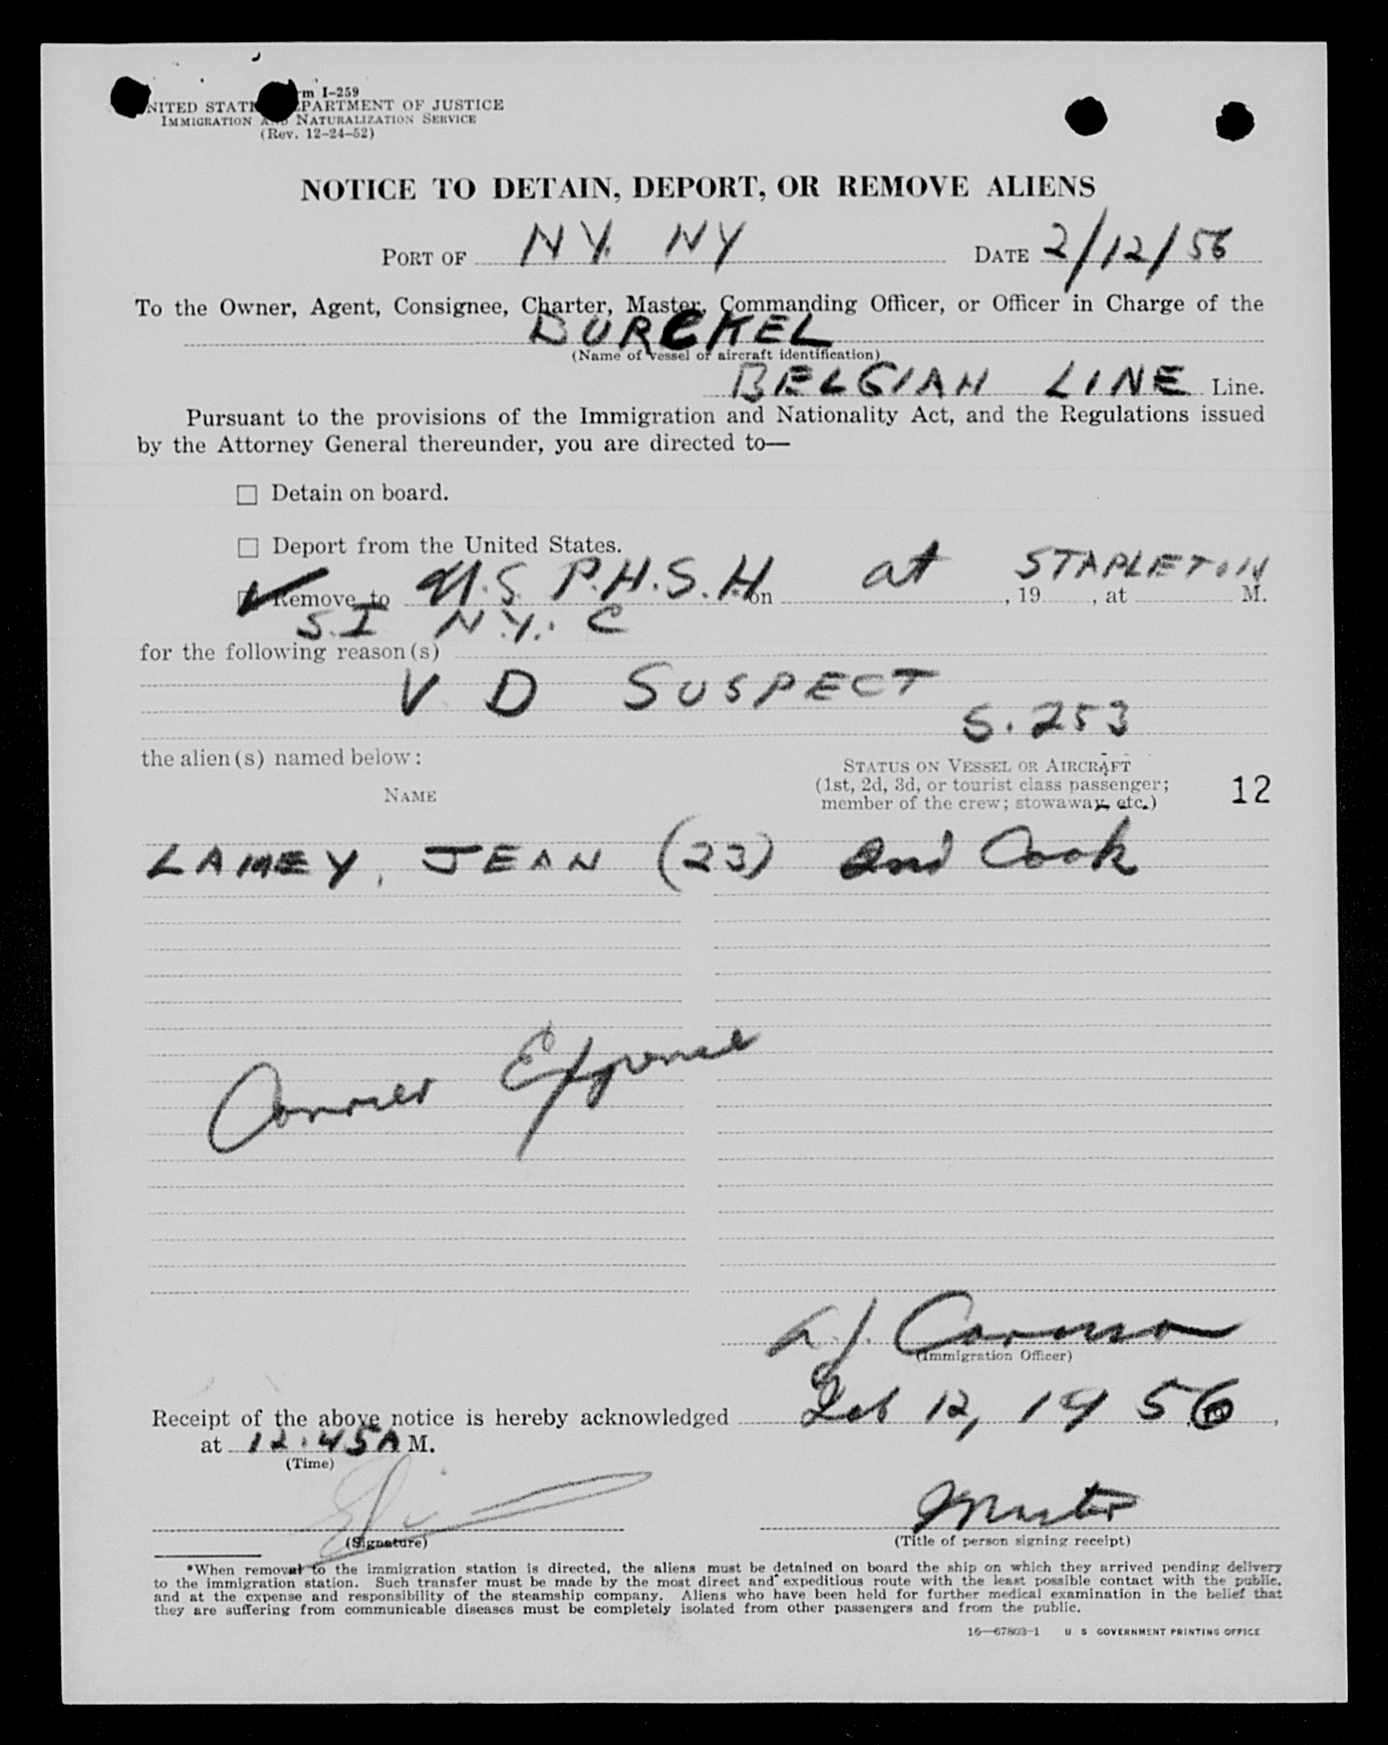 m I-259
NITED STAT PARTMENT OF JUSTICE
IMMIGRATION AND NATURALIZATION SERVICE
(Rev. 12-24-52)
NOTICE TO DETAIN, DEPORT, OR REMOVE ALIENS
PORT OF NY. NY DATE 2/12/56
To the Owner, Agent, Consignee, Charter, Master, Commanding Officer, or Officer in Charge of the
BURCKEL
(Name of vessel or aircraft identification)
BELGIAN LINE Line.
Pursuant to the provisions of the Immigration and Nationality Act, and the Regulations issued
by the Attorney General thereunder, you are directed to—
☐ Detain on board.
☐ Deport from the United States.
Remove to U.S. P.H.S.H. on at STAPLETON , 19 , at M.
S.I N.Y. C
for the following reason(s)
V D SUSPECT
S. 253
the alien(s) named below:
STATUS ON VESSEL OR AIRCRAFT
(1st, 2d, 3d, or tourist class passenger;
member of the crew; stowaway, etc.)
12
NAME
LAMEY, JEAN (23) 2nd Cook
Carrier Expense
A.J. Caruso
(Immigration Officer)
Receipt of the above notice is hereby acknowledged Feb 12, 1956,
at 12:45A M.
(Time)
Master
(Signature) (Title of person signing receipt)
*When removal to the immigration station is directed, the aliens must be detained on board the ship on which they arrived pending delivery
to the immigration station. Such transfer must be made by the most direct and expeditious route with the least possible contact with the public,
and at the expense and responsibility of the steamship company. Aliens who have been held for further medical examination in the belief that
they are suffering from communicable diseases must be completely isolated from other passengers and from the public.
16—67803-1 U. S. GOVERNMENT PRINTING OFFICE